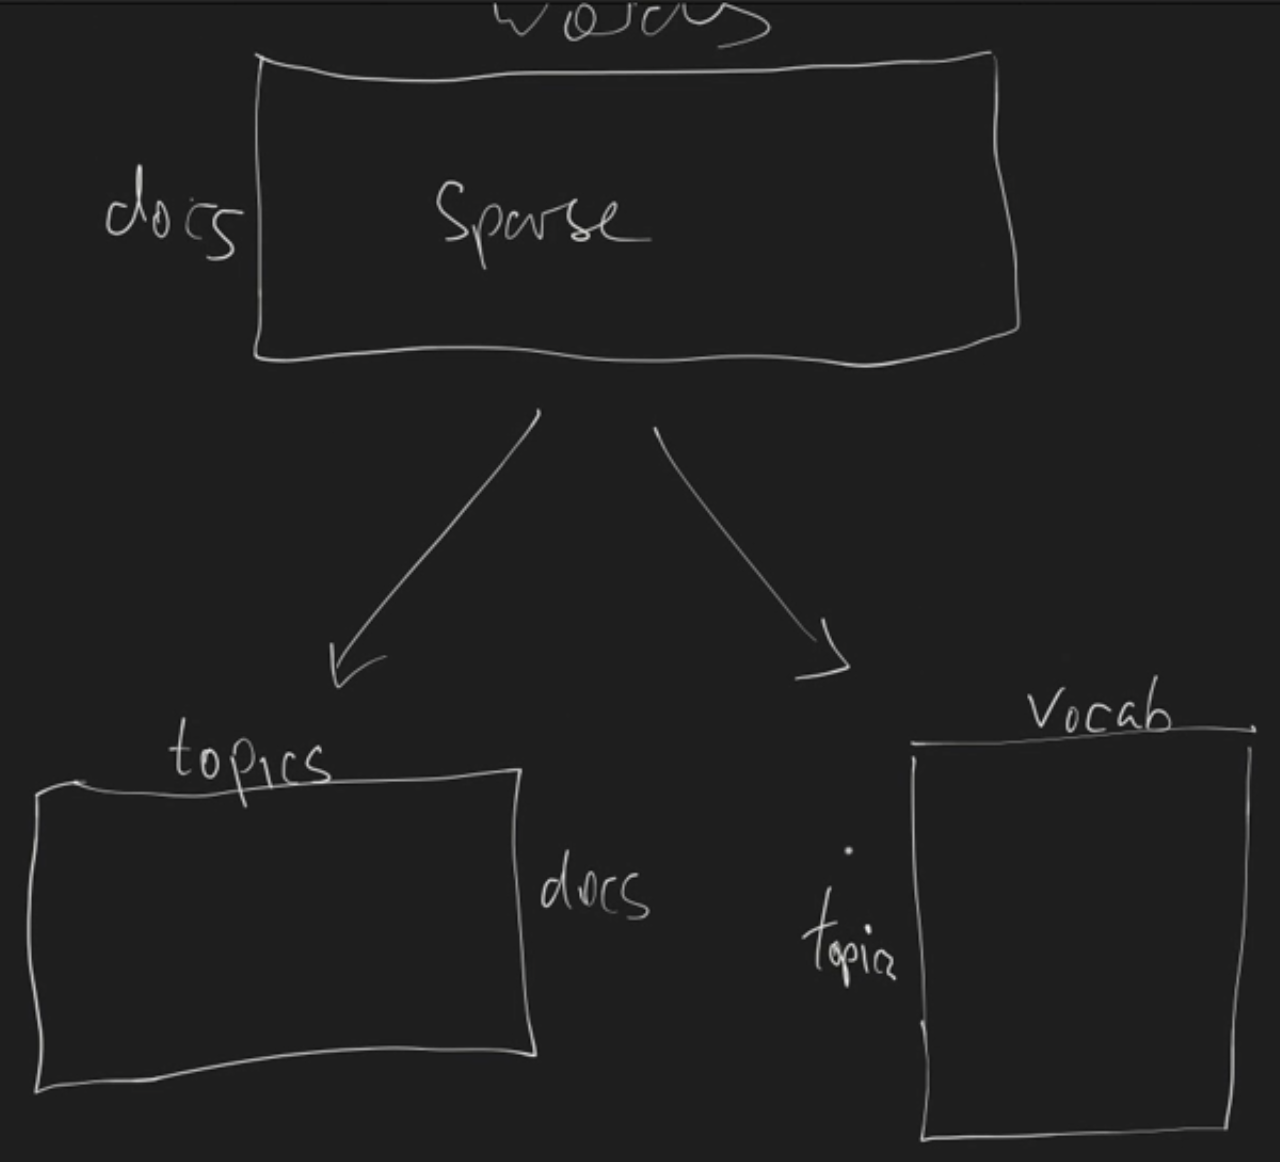 words
docs
Sparse
topics
docs
Vocab
topic